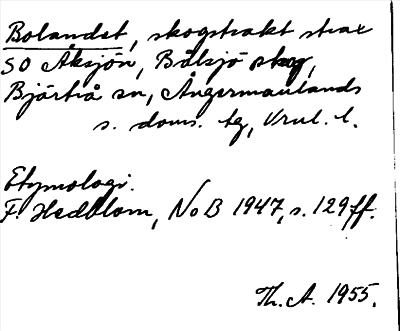 Bolandet, skogstrakt strax
SO Åksjön, Bålsjö skog,
Bjärtrå sn, Ångermanlands
s. doms. tg, Vnrl. l.
Etymologi.
F. Hedblom, NoB 1947, s. 129 ff.
Th. A. 1955.